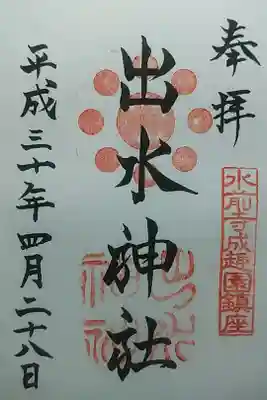 奉拝
水前寺成趣園鎮座
出水神社
出水
神社
平成三十年四月二十八日